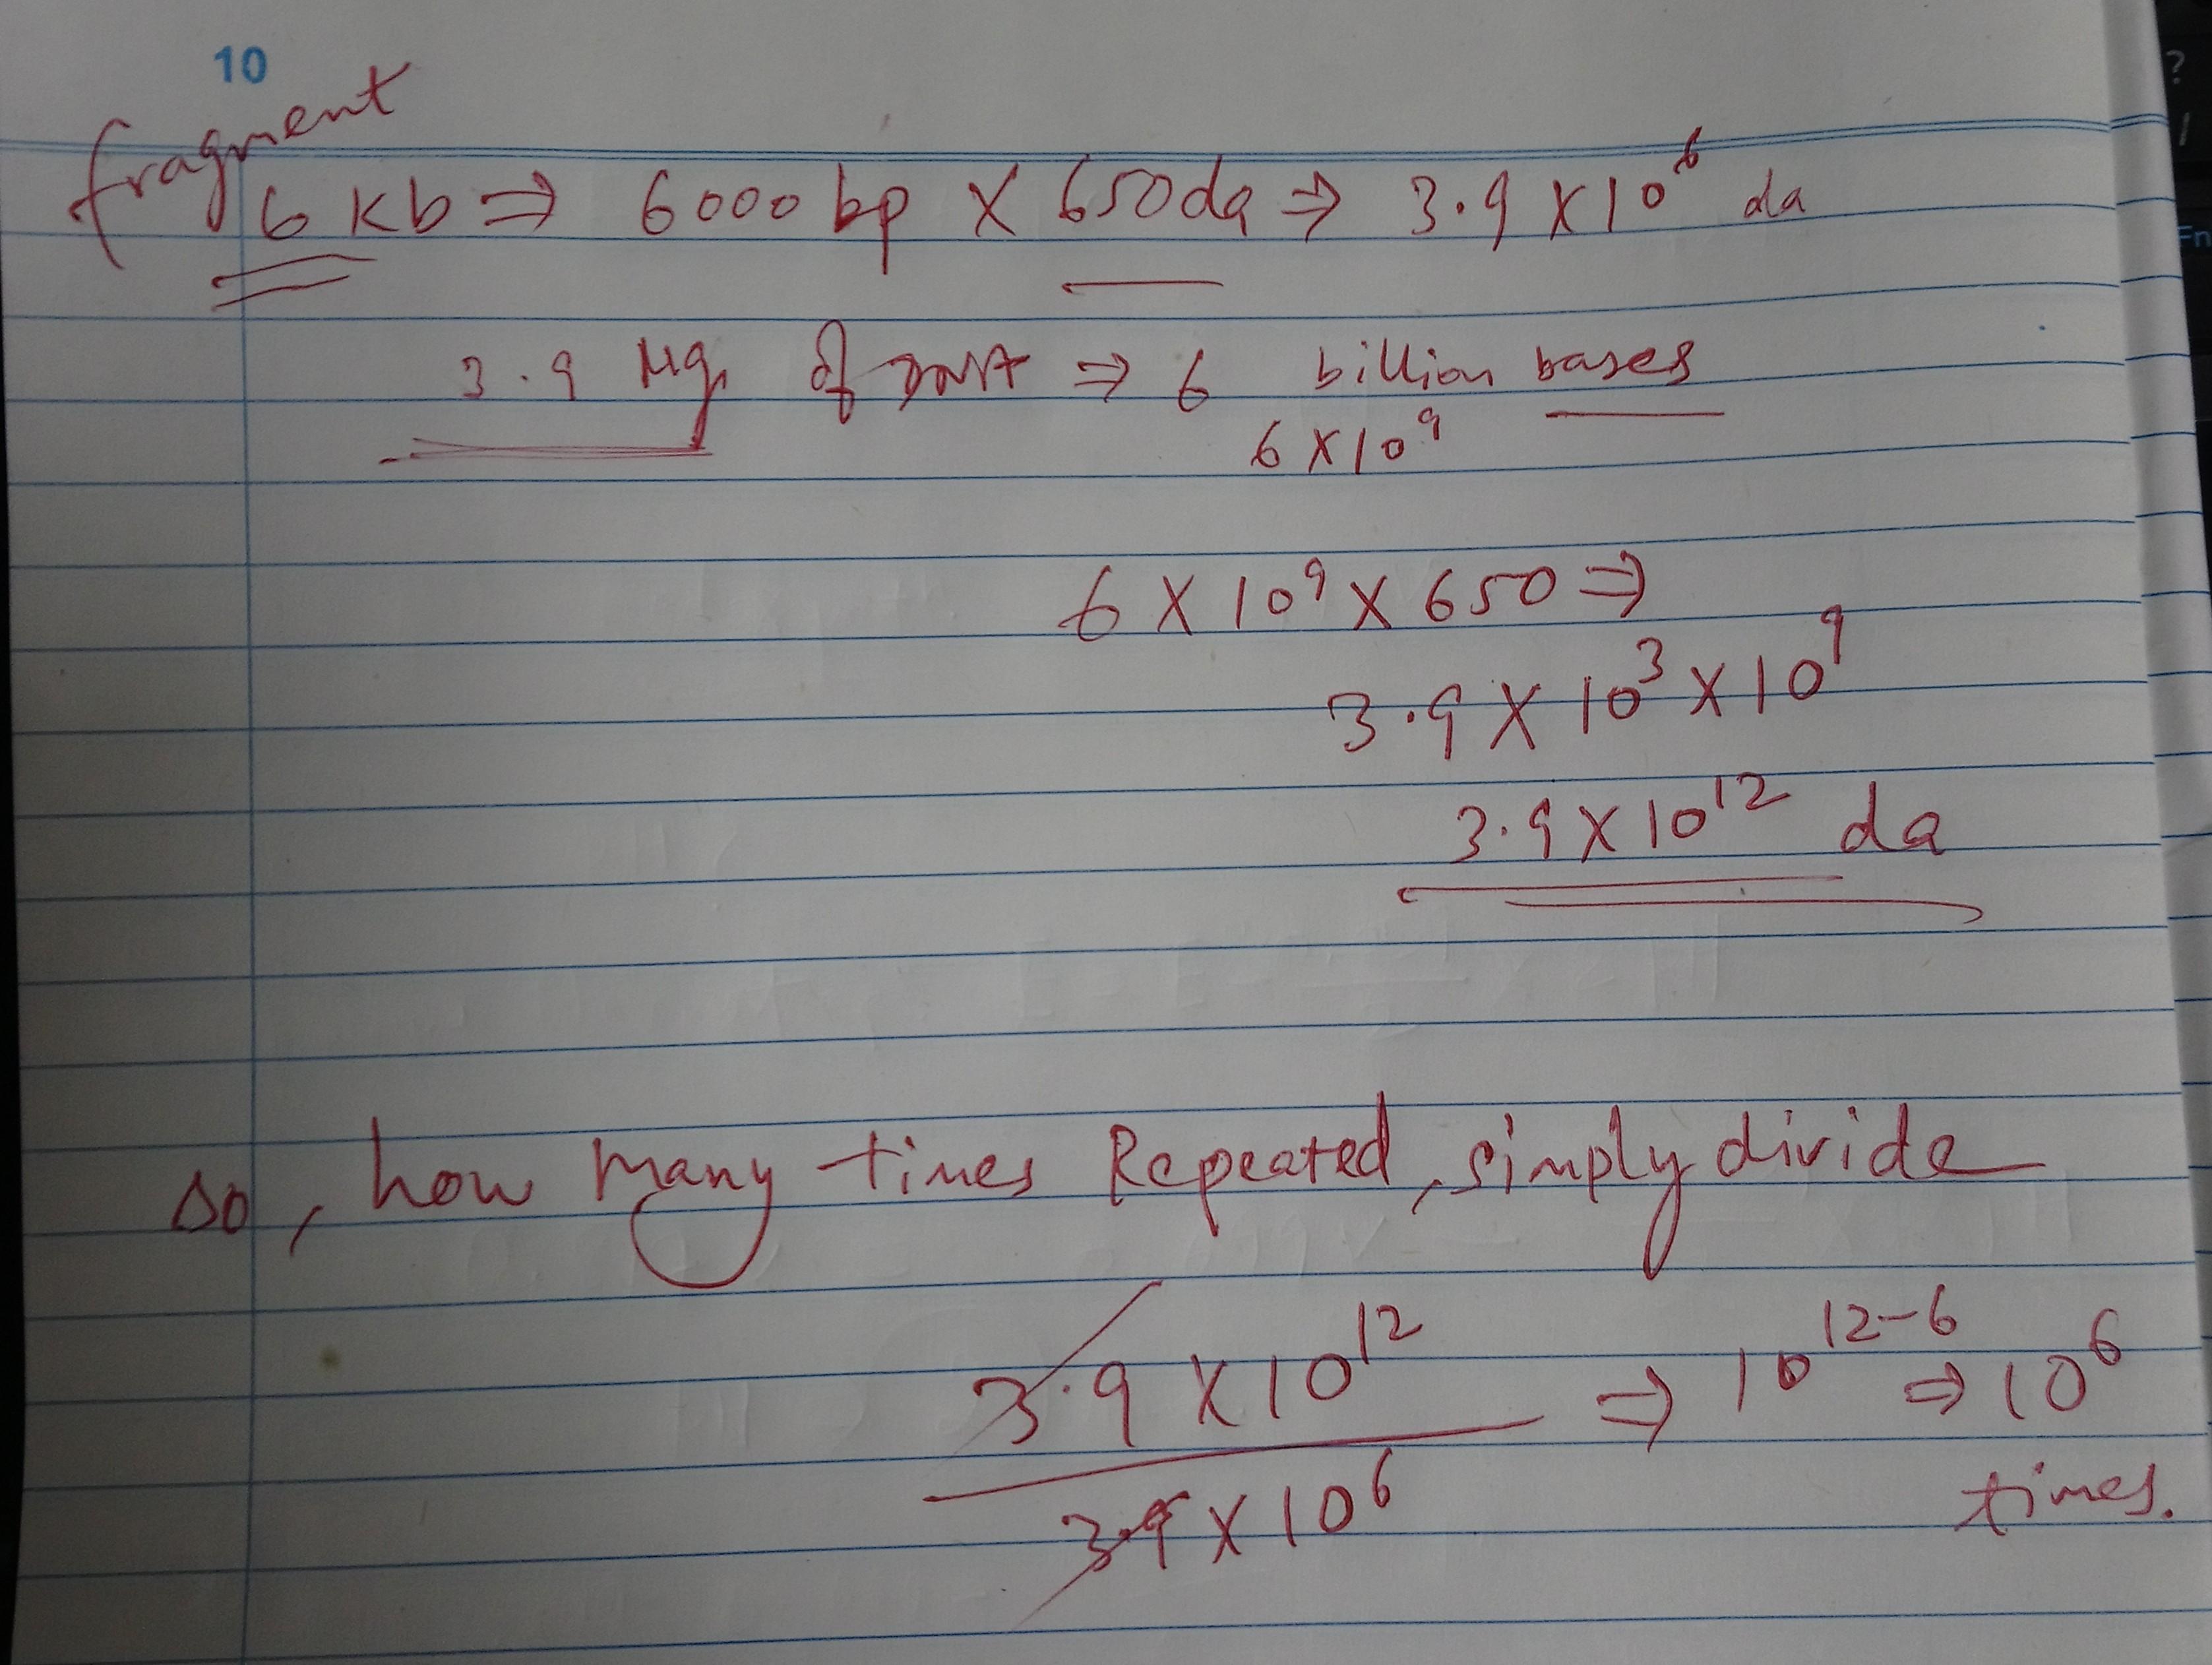 10
fragment
6 Kb ⇒ 6000 bp X 650da ⇒ 3.9 X 10⁶ da
3.9 Mg of DNA ⇒ 6 billion bases
6 X 10⁹
6 X 10⁹ X 650 ⇒
3.9 X 10³ X 10⁹
3.9 X 10¹² da
so, how many times Repeated, simply divide
3.9 X 10¹² ⇒ 10¹²⁻⁶ ⇒ 10⁶
3.9 X 10⁶ times.
?
/
Fn